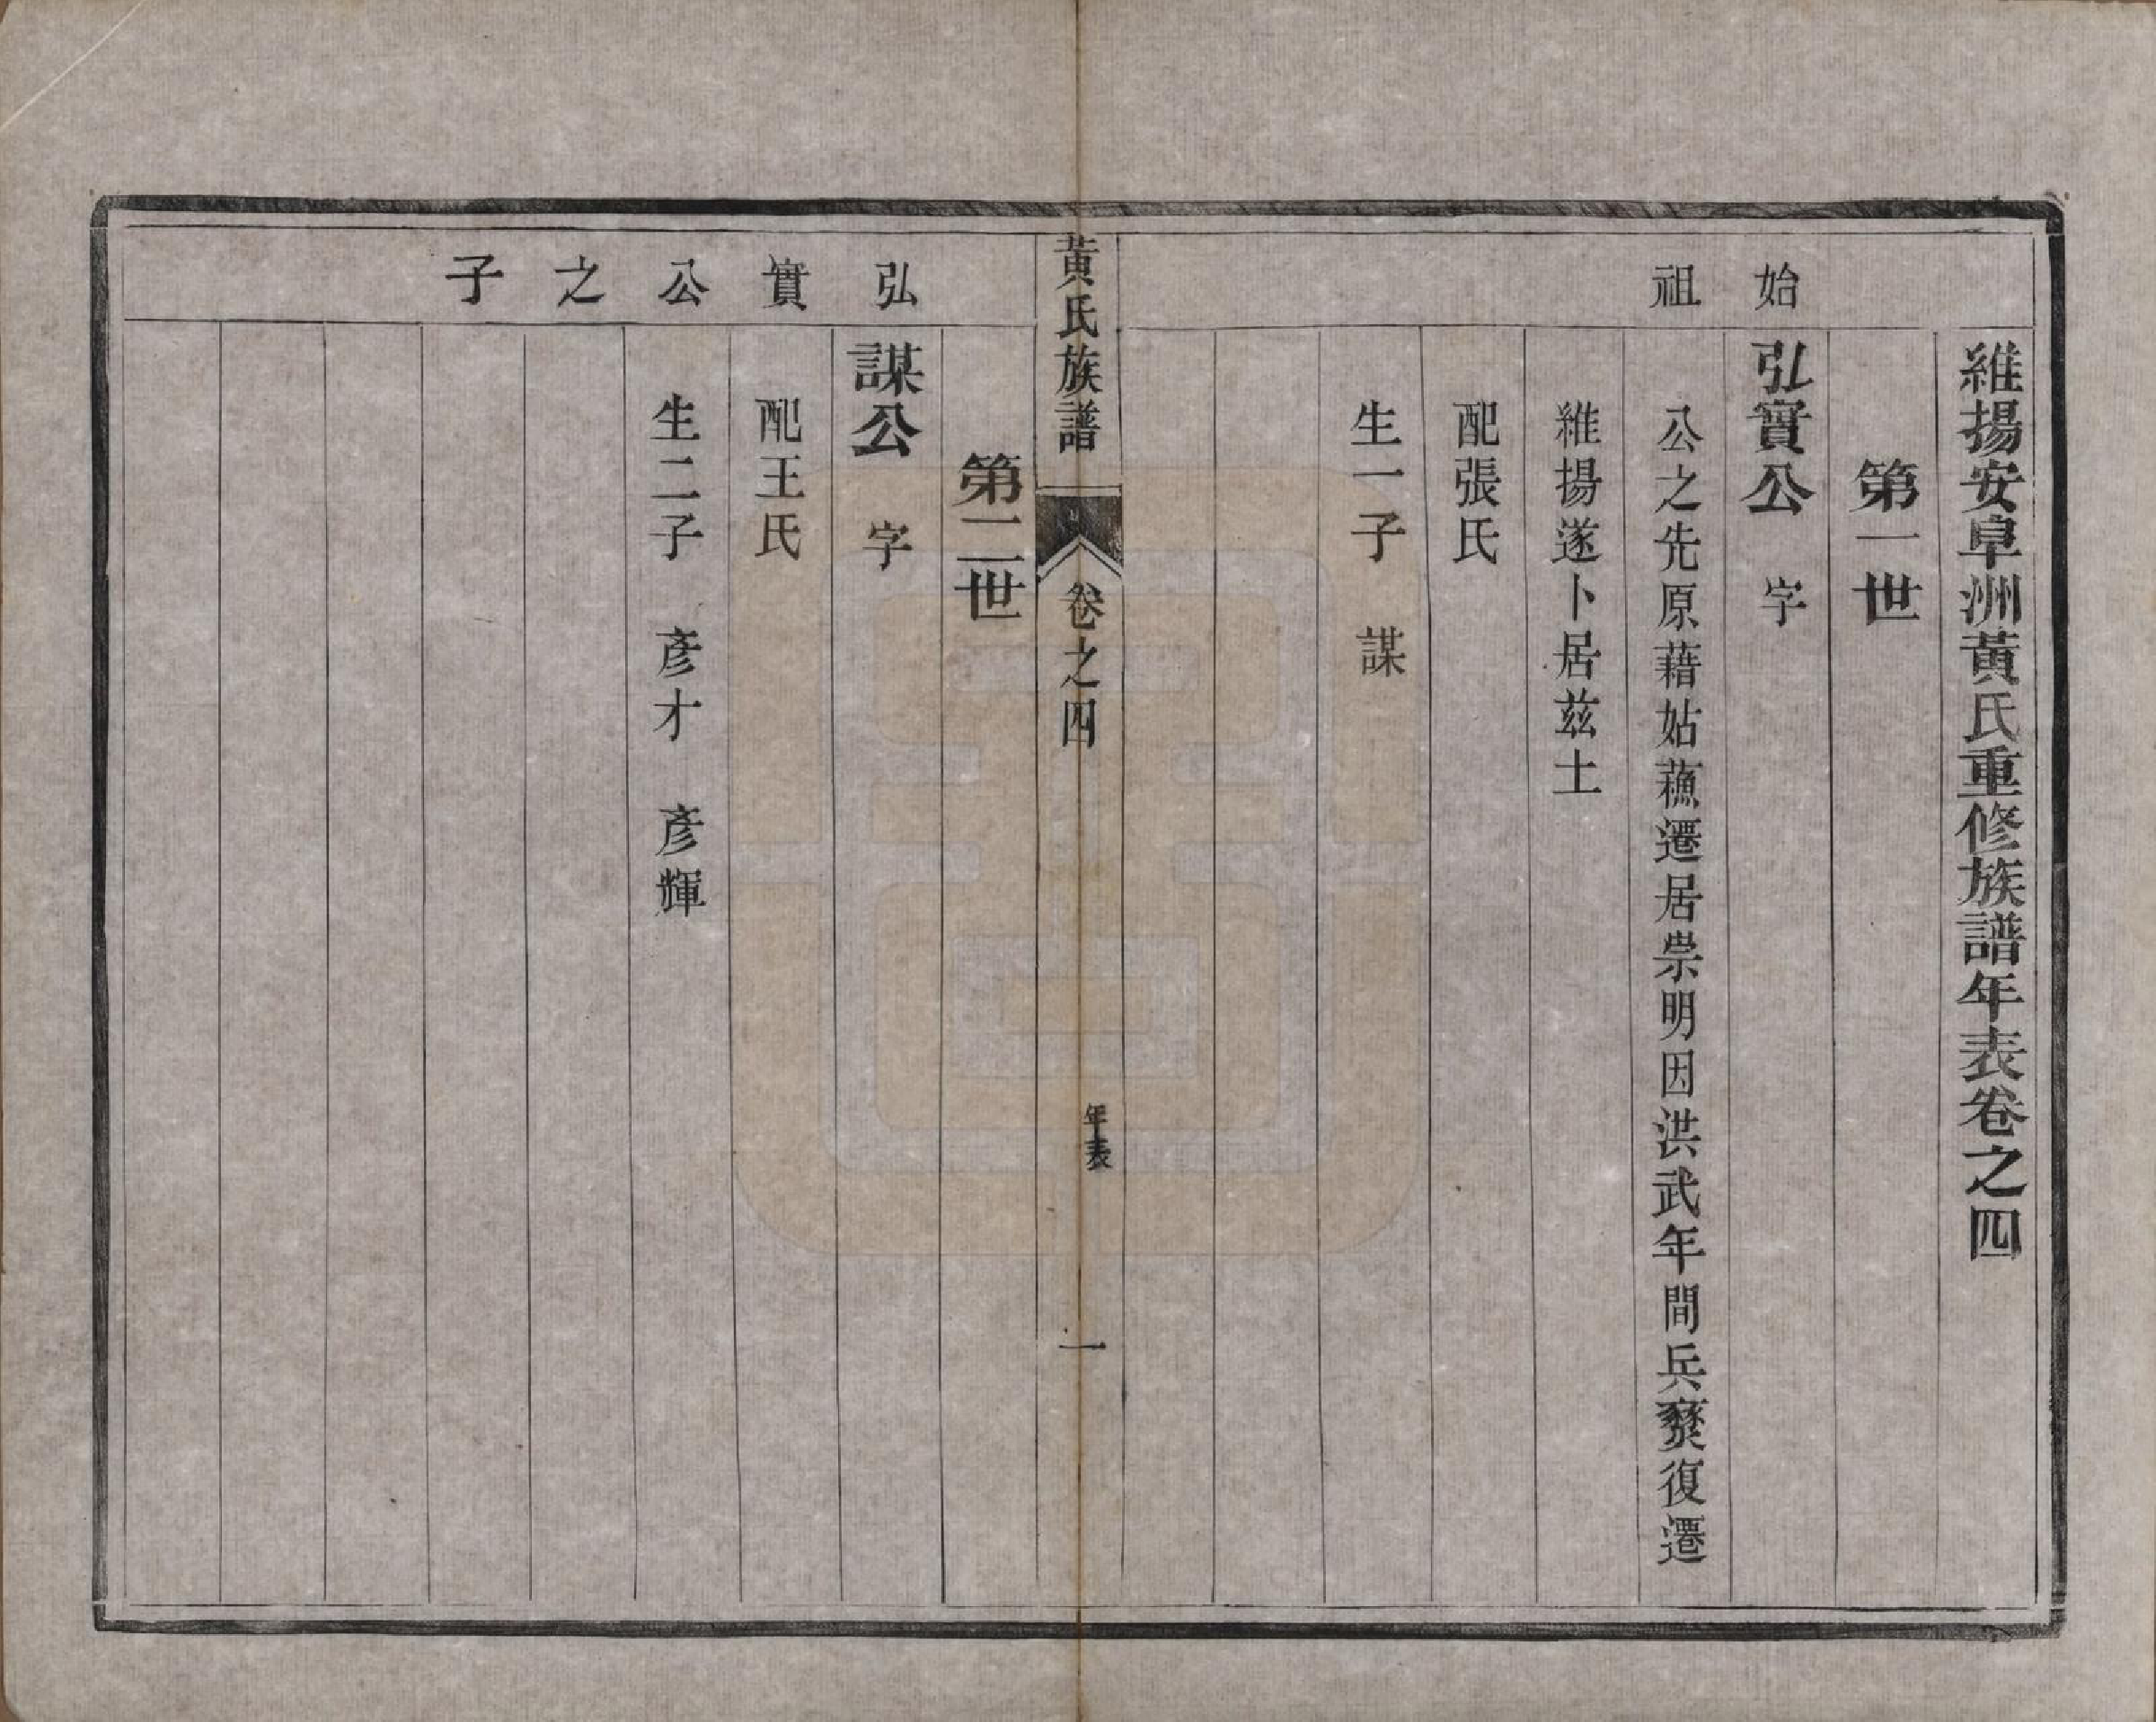 維揚安阜洲黃氏重修族譜年表卷之四
第一世
始祖
弘實公　字
公之先原藉姑蘓遷居崇明因洪武年間兵燹復遷
維揚遂卜居茲土
配張氏
生一子　謀
黃氏族譜　卷之四　年表　一
第二世
弘實公之子
謀公　字
配王氏
生二子　彥才　彥輝